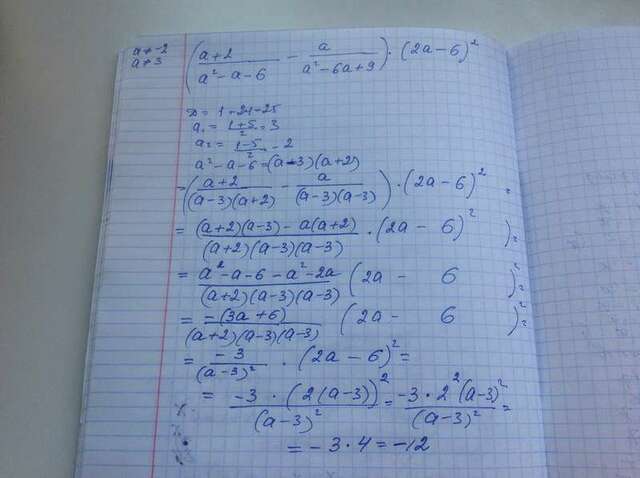 a ≠ -2
a ≠ 3
( (a+2)/(a²-a-6) - a/(a²-6a+9) ) · (2a-6)²
D = 1+24=25
a₁ = (1+5)/2 = 3
a₂ = (1-5)/2 = -2
a²-a-6=(a-3)(a+2)
= ( (a+2)/((a-3)(a+2)) - a/((a-3)(a-3)) ) · (2a-6)² =
= ((a+2)(a-3) - a(a+2))/((a+2)(a-3)(a-3)) · (2a - 6)² )=
= (a²-a-6-a²-2a)/((a+2)(a-3)(a-3)) (2a - 6 )²=
= (-(3a+6))/((a+2)(a-3)(a-3)) (2a - 6 )²=
= (-3)/((a-3)²) · (2a-6)² =
= (-3 · (2(a-3))²)/((a-3)²) = (-3 · 2²(a-3)²)/((a-3)²) =
= -3 · 4 = -12